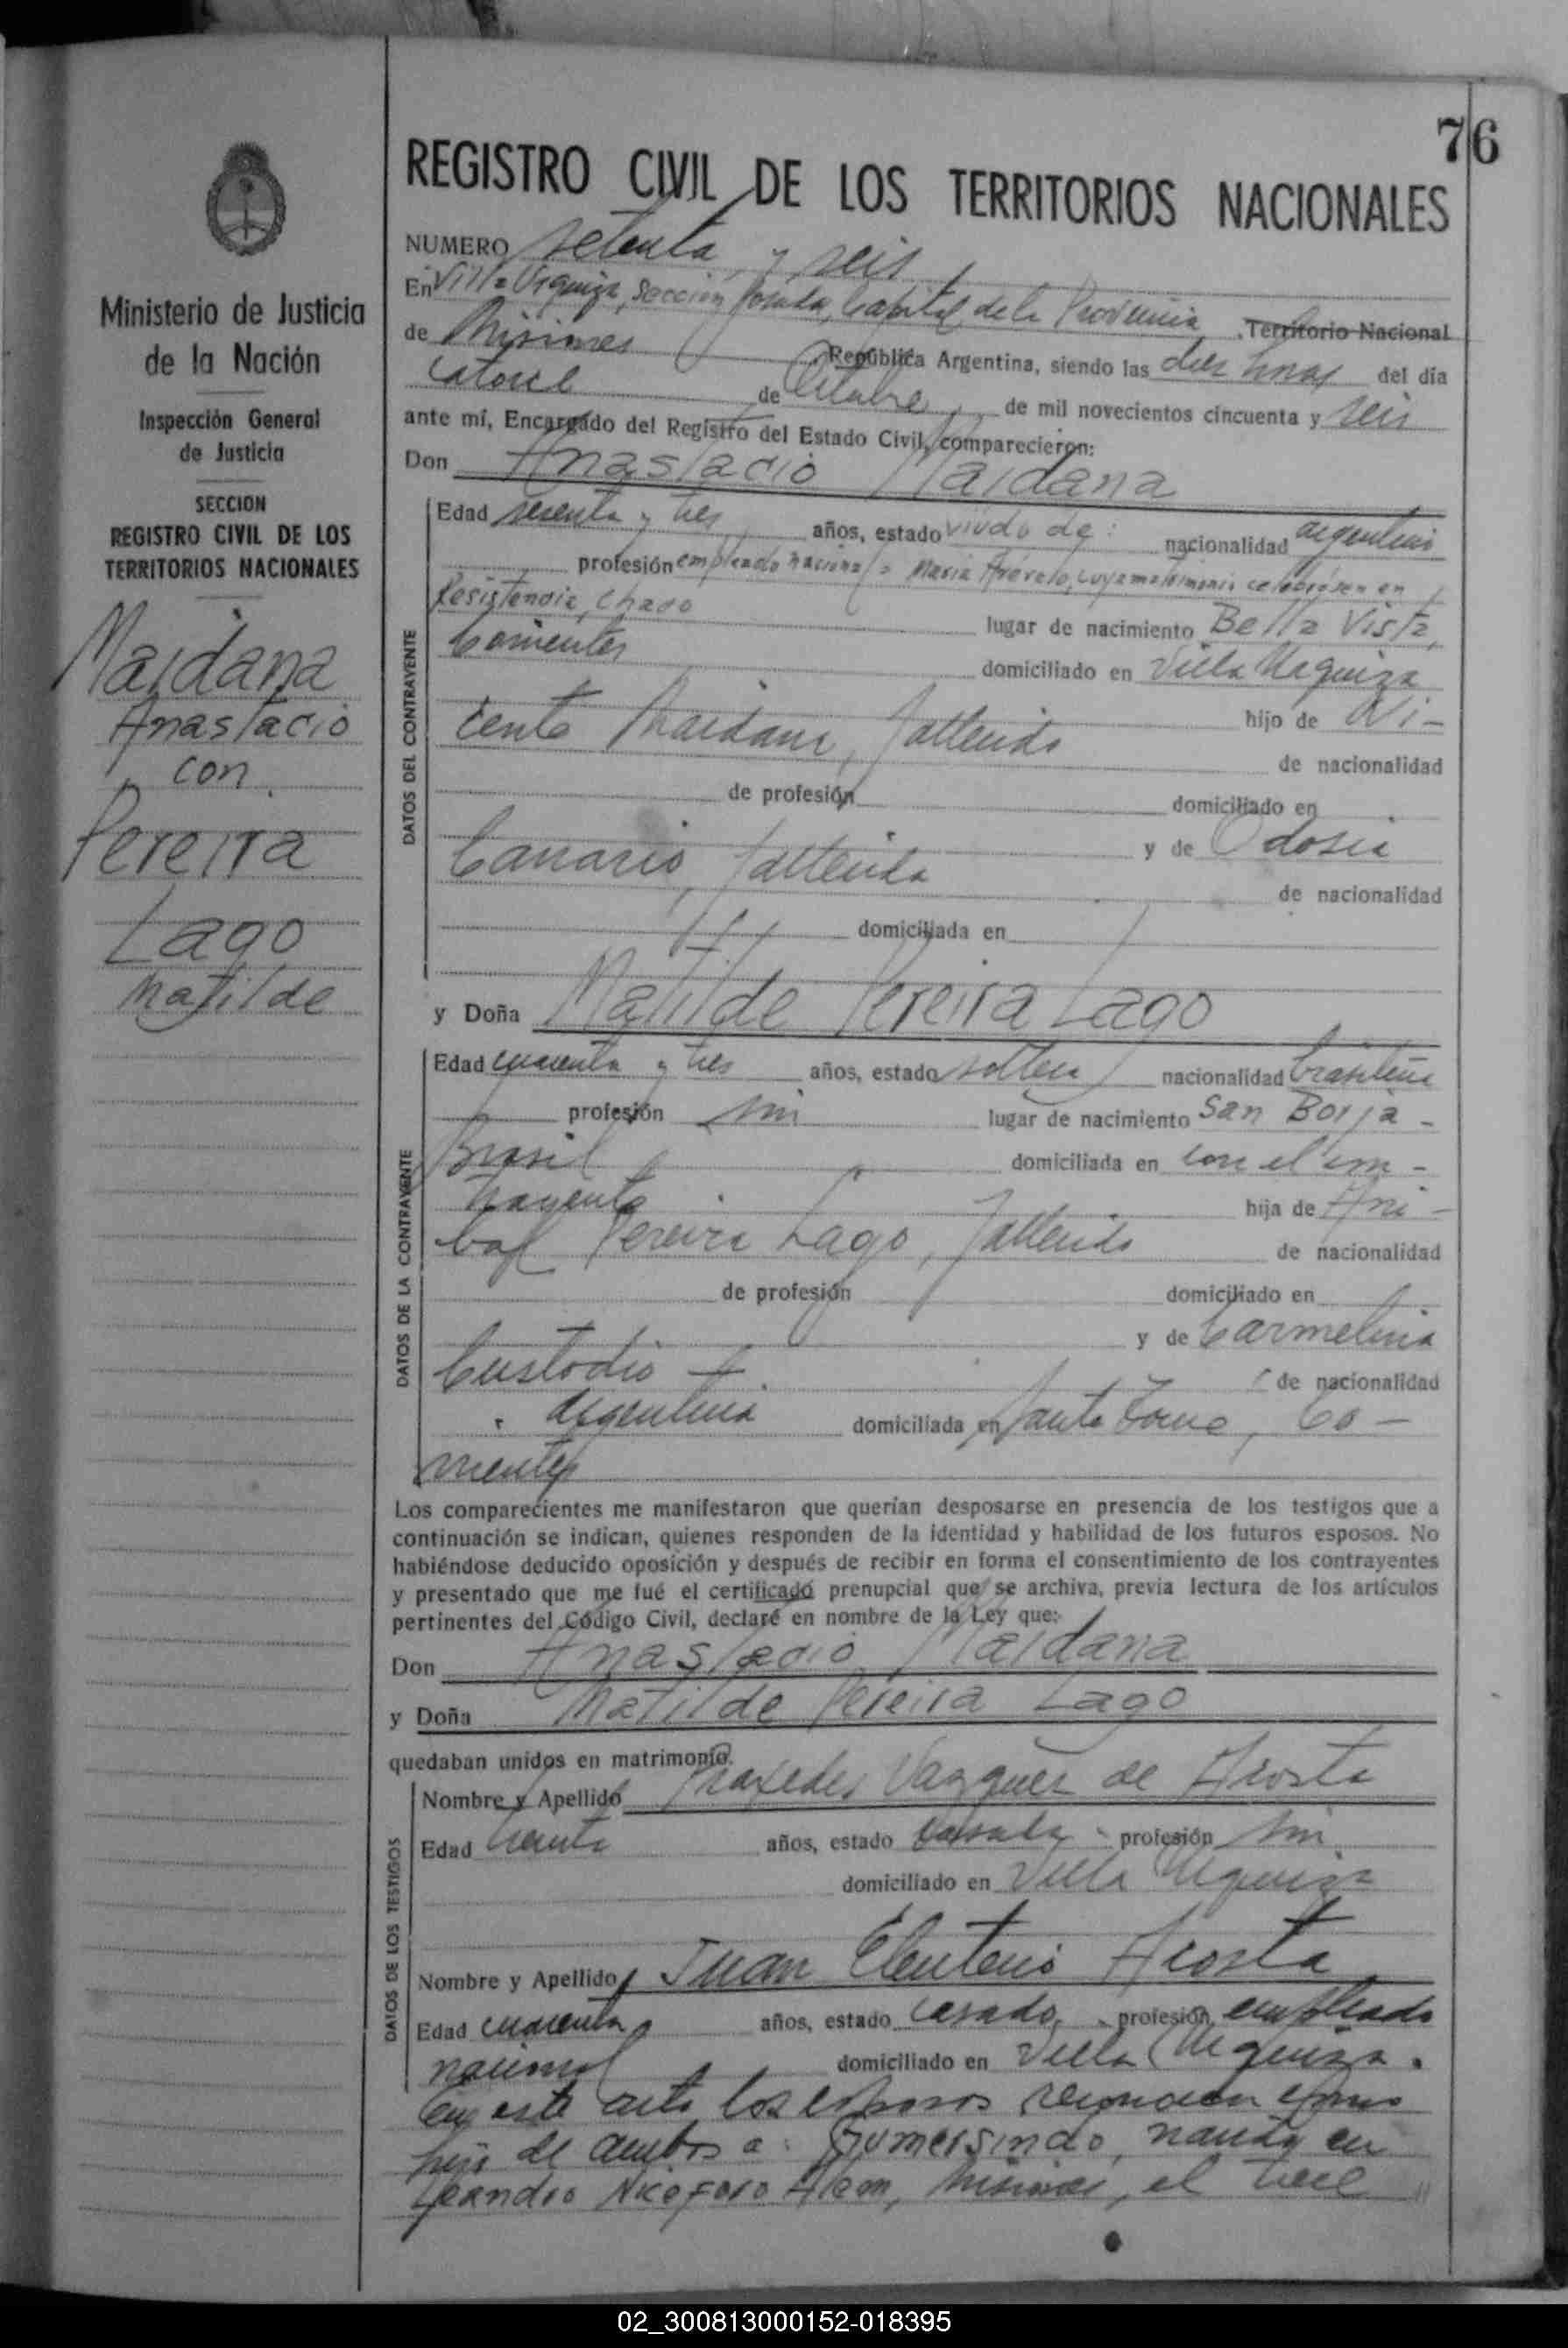 76
REGISTRO CIVIL DE LOS TERRITORIOS NACIONALES
NUMERO setenta y seis
En Villa Urquiza, Sección Posadas, Capital de la Provincia Territorio Nacional
de Misiones República Argentina, siendo las diez horas del día
catorce de Octubre de mil novecientos cincuenta y seis
ante mí, Encargado del Registro del Estado Civil, comparecieron:
Don Anastacio Maidana
Edad sesenta y tres años, estado viudo de: nacionalidad argentino
profesión empleado nacional = Maria Arévalo, cuyo matrimonio celebróse en
Resistencia, Chaco lugar de nacimiento Bella Vista,
Corrientes domiciliado en Villa Urquiza
hijo de Vi-
cente Maidana, fallecido de nacionalidad
de profesión domiciliado en
y de Odosia
Canario, fallecida de nacionalidad
domiciliada en
y Doña Matilde Pereira Lago
Edad cuarenta y tres años, estado soltera nacionalidad brasileña
profesión sin lugar de nacimiento San Borja -
Brasil domiciliada en con el con-
trayente hija de Aní-
bal Pereira Lago, fallecido de nacionalidad
de profesión domiciliado en
y de Carmelina
Custodio de nacionalidad
argentina domiciliada en Santo Tomé, Co-
rrientes
Los comparecientes me manifestaron que querían desposarse en presencia de los testigos que a
continuación se indican, quienes responden de la identidad y habilidad de los futuros esposos. No
habiéndose deducido oposición y después de recibir en forma el consentimiento de los contrayentes
y presentado que me fué el certificado prenupcial que se archiva, previa lectura de los artículos
pertinentes del Código Civil, declaré en nombre de la Ley que:
Don Anastacio Maidana
y Doña Matilde Pereira Lago
quedaban unidos en matrimonio.
Nombre y Apellido Praxedes Vazquez de Acosta
Edad treinta años, estado casada profesión sin
domiciliado en Villa Urquiza
Nombre y Apellido Juan Eleuterio Acosta
Edad cuarenta años, estado casado profesión empleado
nacional domiciliado en Villa Urquiza.
En este acto los esposos reconocen como
hijo de ambos a: Gumersindo, nacido en
Leandro Nicéforo Alem, Misiones, el trece
Ministerio de Justicia
de la Nación
Inspección General
de Justicia
SECCION
REGISTRO CIVIL DE LOS
TERRITORIOS NACIONALES
Maidana
Anastacio
con
Pereira
Lago
Matilde
DATOS DEL CONTRAYENTE
DATOS DE LA CONTRAYENTE
DATOS DE LOS TESTIGOS
02_300813000152-018395